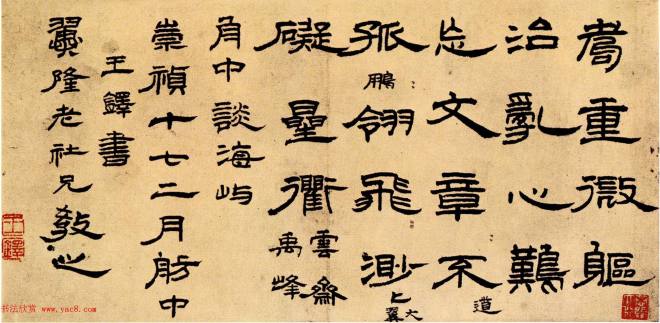 重微軀
治亂心難
忘文章不
道
孤鵬翎飛渺
上大翼
礙星衢
雲齋
禹峰
角中談海屿
崇禎十七二月舫中
王鐸書
翼隆老社兄教之
王鐸
书法欣赏 www.yac8.com